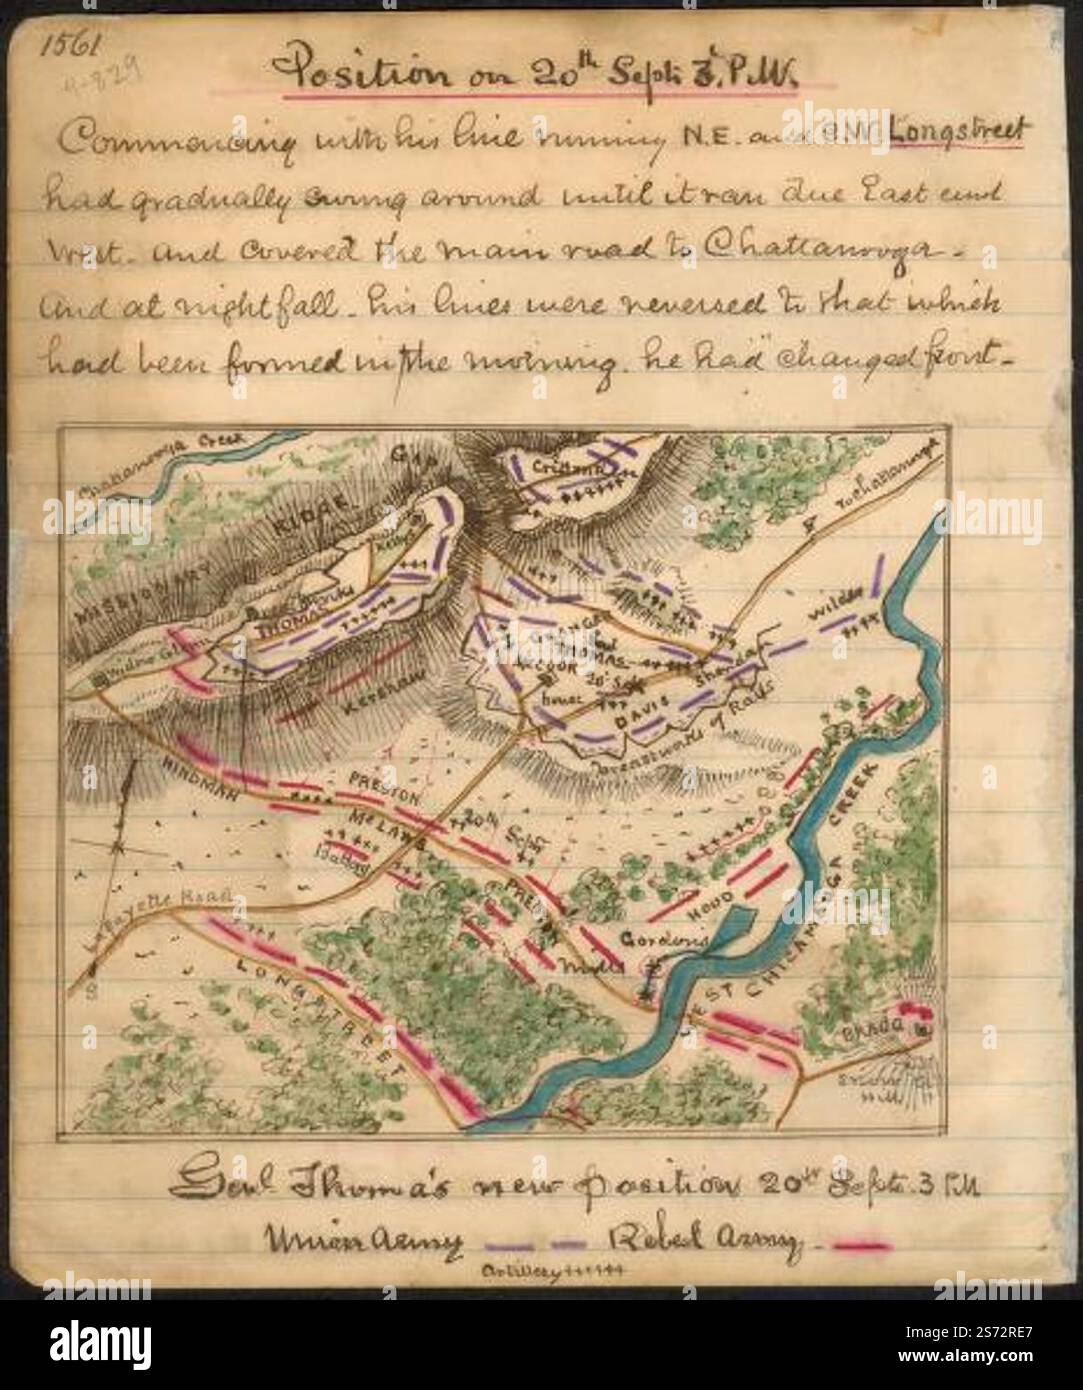 1561
9-829
Position on 20th Sept: 3. P.M.
Commencing with his line running N.E. and S.W. Longstreet
had gradually swung around until it ran due East and
West - and covered the main road to Chattanooga -
and at nightfall - his lines were reversed to that which
had been formed in the morning. he had changed front -
Chattanooga Creek
GAP
Crittenden
To Chattanooga
MISSIONARY RIDGE
Kelly's
THOMAS
Widow Glenn
KERSHAW
GRANGER
and
THOMAS
McCOOK 20' Sept
house
DAVIS
Sheridan
Wilder
breastworks of Rails
HINDMAN
PRESTON
McLAWS
20th Sept
PRESTON
Lafayette Road
LONGSTREET
HOOD
Gordon's
Mills
WEST CHICAMAUGA CREEK
BRAGG
Genl. Thoma's new position 20th Sept. 3 P.M
Union Army
Rebel Army
Artillery
alamy
Image ID: 2S72RE7
www.alamy.com